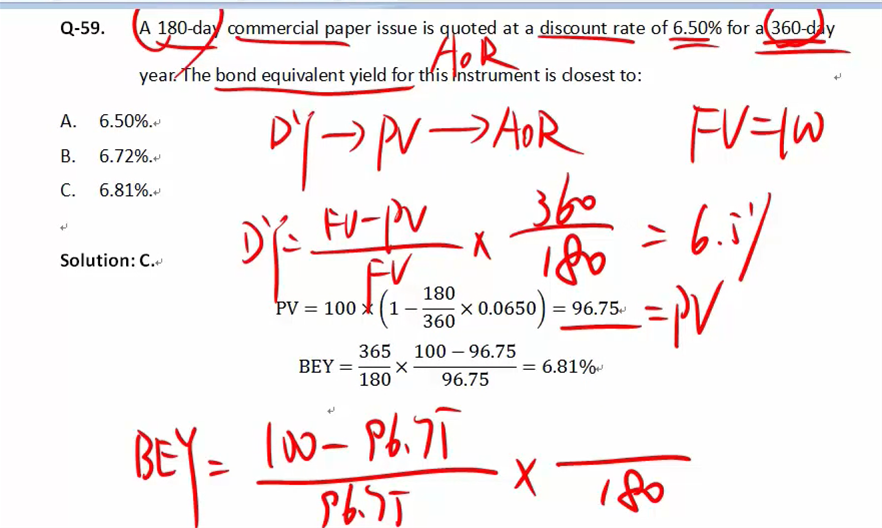 Q-59. A 180-day commercial paper issue is quoted at a discount rate of 6.50% for a 360-day
year. The bond equivalent yield for this instrument is closest to:
AOR
A. 6.50%.
B. 6.72%.
C. 6.81%.
DY → PV → AOR
FV=100
DY = FV-PV / FV × 360 / 180 = 6.5%
Solution: C.
PV = 100 × (1 − 180/360 × 0.0650) = 96.75 = PV
BEY = 365/180 × 100 − 96.75 / 96.75 = 6.81%
BEY = 100 - 96.75 / 96.75 × / 180